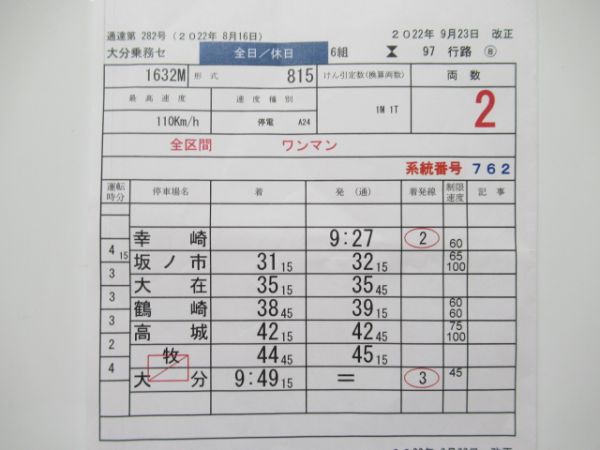 通達第 282号(2022年 8月16日) 2022年 9月23日 改正
大分乗務セ 全日/休日 6組 97 行路 ⑧
1632M 形式 815 けん引定数(換算両数) 両数
最高速度 速度種別 1M 1T 2
110Km/h 停電 A24
全区間 ワンマン
系統番号 762
運転時分 停車場名 着 発(通) 着発線 制限速度 記事
幸崎 9:27 2 60
4 15 坂ノ市 31 15 32 15 65 100
3 大在 35 15 35 45
3 鶴崎 38 45 39 15 60 60
3 高城 42 15 42 45 75 100
2 牧 44 45 45 15
4 大分 9:49 15 = 3 45